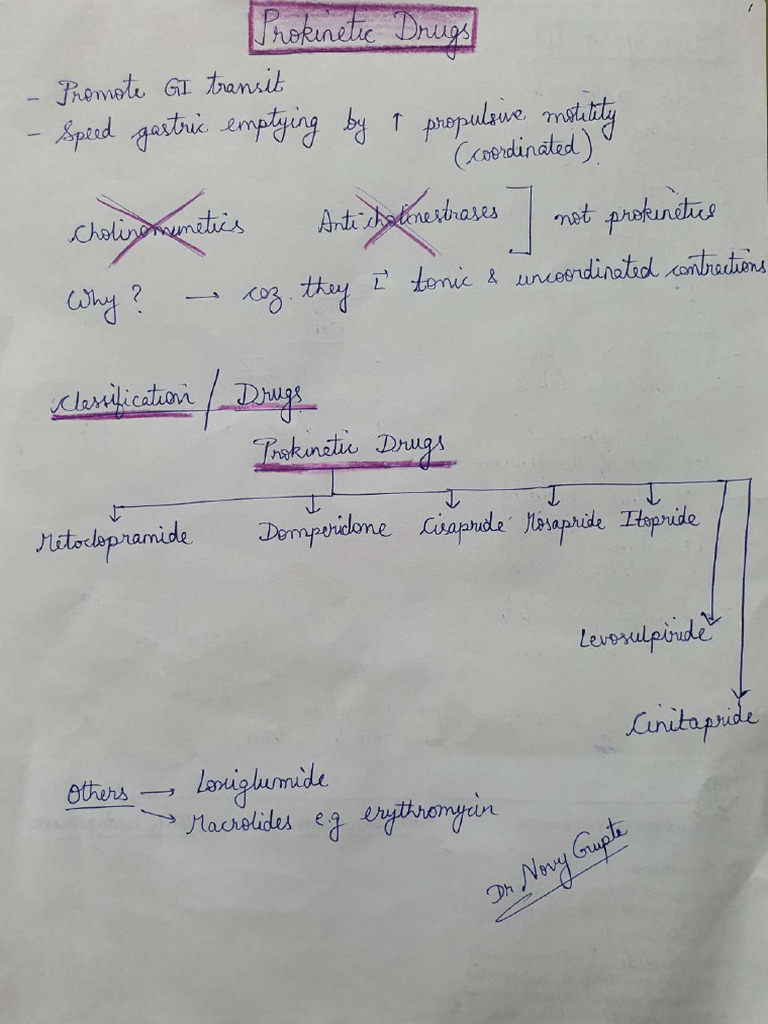 Prokinetic Drugs
- Promote GI transit
- Speed gastric emptying by ↑ propulsive motility
(coordinated).
Cholinomimetics Anticholinestrases ] not prokinetics
Why? → coz. they tonic & uncoordinated contractions
Classification / Drugs
Prokinetic Drugs
Metoclopramide Domperidone Cisapride Mosapride Itopride
Levosulpiride
Cinitapride
Others → Loxiglumide
→ Macrolides e.g erythromycin
Dr Novy Gupte